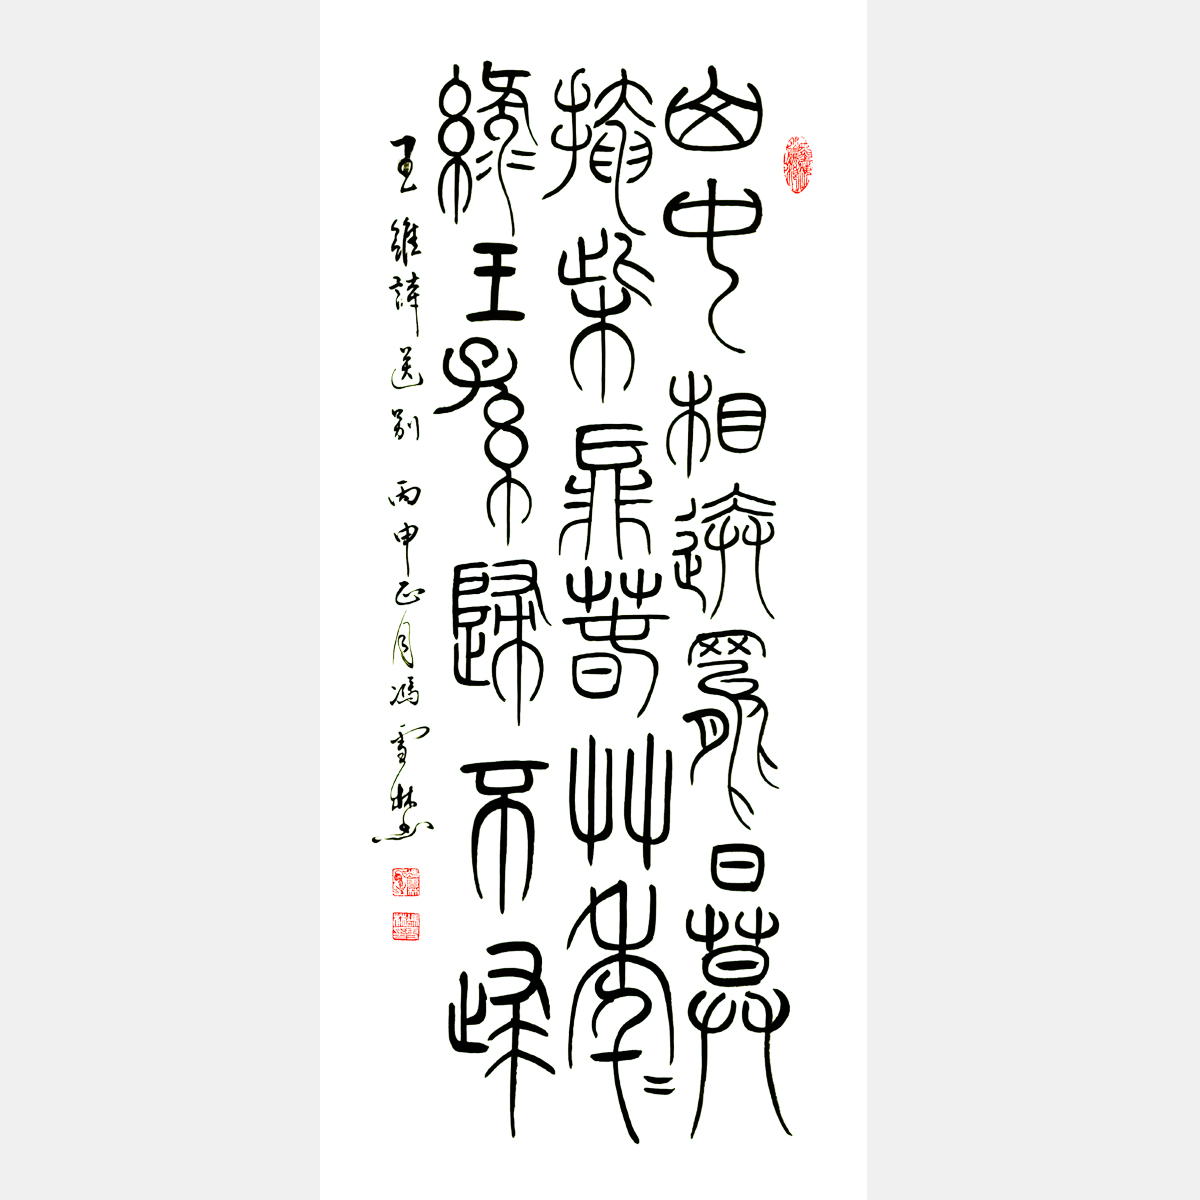 山中相送罷日暮
掩柴扉春草年〻
綠王孫歸不歸
王維詩送别 丙申正月馮雪林書